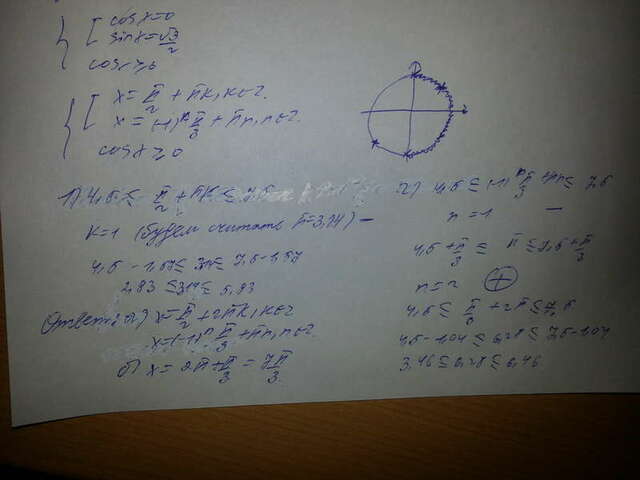 cos x = 0
sin x = √3/2
cos x ≥ 0
x = π/2 + πk, k∈Z.
x = (-1)ⁿ π/3 + πn, n∈Z.
cos x ≥ 0
1) 4,5 ≤ π/2 + πk ≤ 7,5
k=1 (будем считать π=3,14) –
4,5 - 1,57 ≤ 3,14 ≤ 7,5-1,57
2,83 ≤ 3,14 ≤ 5,83
Ответ: а) x = π/2 + 2πk, k∈Z
x = (-1)ⁿ π/3 + πn, n∈Z.
б) x = 2π + π/3 = 7π/3
2) 4,5 ≤ (-1)ⁿ π/3 + πn ≤ 7,5
n = 1 –
4,5 + π/3 ≤ π ≤ 7,5 + π/3
n = 2 +
4,5 ≤ π/3 + 2π ≤ 7,5
4,5-1,04 ≤ 6,28 ≤ 7,5-1,04
3,46 ≤ 6,28 ≤ 6,46